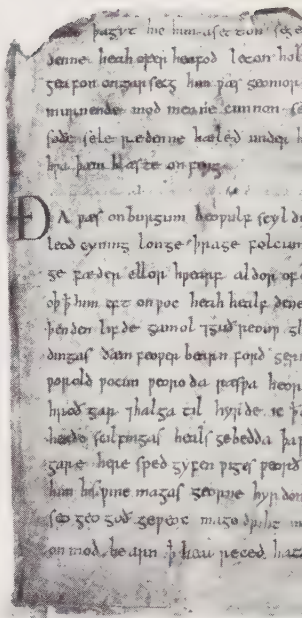 þa gyt hie him asetton sege
denne heah ofer heafod leton hol
geafon ongarsecg him ƿæs geomor
murnende mod men ne cunnon se
soðe sele rædenne hæleð under h
hƿa þæm hlæste onfeng
ÐA ƿæs onburgum beoƿulf scyld
leod cyning longe þrage folcum
ge fæder ellor hƿearf aldor of e
oþ þ̄ him eft onƿoc heah healf dene
þenden lifde gamol ⁊guð reouƿ gl
dingas ðæm feoƿer bearn forð geri
ƿorold ƿocun ƿeoroda ræsƿa heor
hroð gar ⁊halga til hyrde ic þ̄
heaðo scilfingas heals gebedda þa
gare here sped gyfen ƿiges ƿeorð
him his ƿine magas georne hyrdon
seo geo goð geƿeox mago driht m
on mod be arn þ̄ heal reced hat